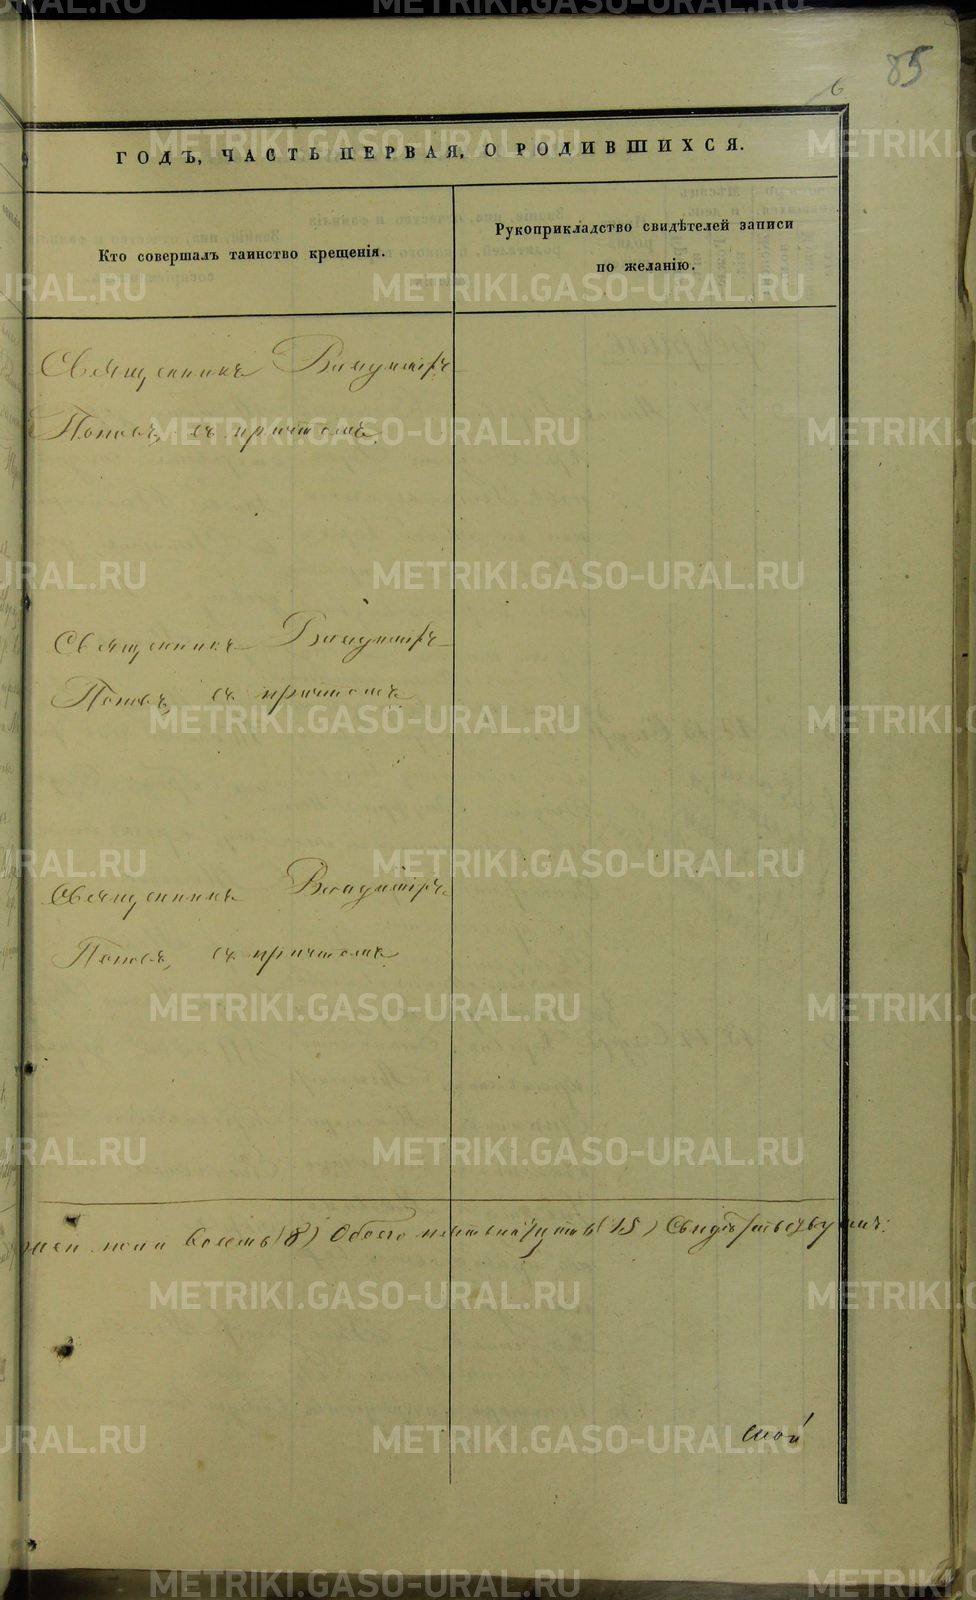 85
6
ГОДЪ, ЧАСТЬ ПЕРВАЯ, О РОДИВШИХСЯ.
Кто совершалъ таинство крещенія.
Рукоприкладство свидѣтелей записи
по желанію.
Священникъ Владиміръ
Поповъ, съ причтомъ.
Священникъ Владиміръ
Поповъ, съ причтомъ
Священникъ Владиміръ
Поповъ, съ причтомъ
восемь (8) Обоего пятьнадцать (15) Свидѣтельствуемъ:
METRIKI.GASO-URAL.RU